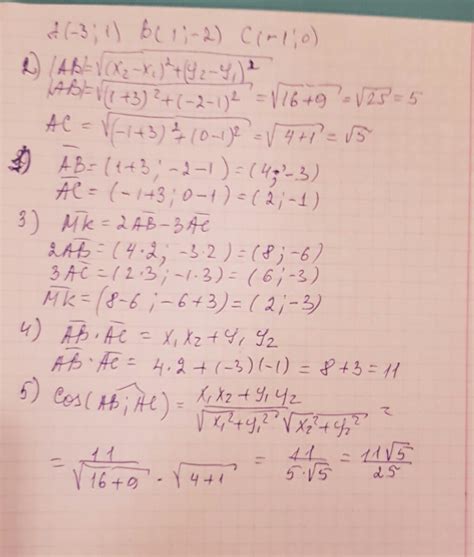 A(-3; 1) B(1; -2) C(-1; 0)
2) |AB| = √((x₂ - x₁)² + (y₂ - y₁)²)
|AB| = √((1+3)² + (-2-1)²) = √(16+9) = √25 = 5
AC = √((-1+3)² + (0-1)²) = √(4+1) = √5
1) AB = (1+3; -2-1) = (4; -3)
AC = (-1+3; 0-1) = (2; -1)
3) MK = 2AB - 3AC
2AB = (4·2; -3·2) = (8; -6)
3AC = (2·3; -1·3) = (6; -3)
MK = (8-6; -6+3) = (2; -3)
4) AB · AC = x₁x₂ + y₁y₂
AB · AC = 4·2 + (-3)(-1) = 8+3 = 11
5) Cos(AB; AC) = (x₁x₂ + y₁y₂) / (√(x₁² + y₁²) √(x₂² + y₂²)) =
= 11 / (√(16+9) · √(4+1)) = 11 / (5·√5) = 11√5 / 25